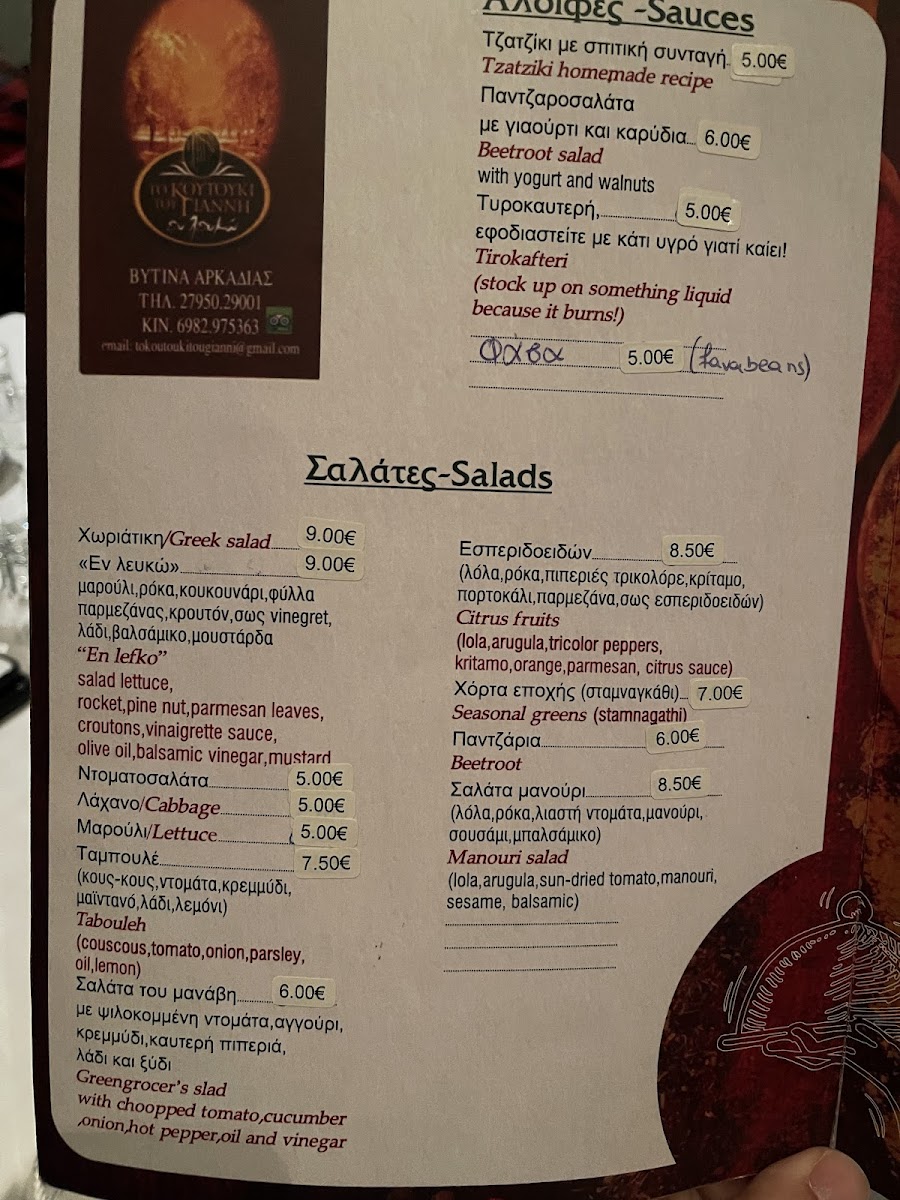 Αλοιφές -Sauces
Τζατζίκι με σπιτική συνταγή. 5.00€
Tzatziki homemade recipe
Παντζαροσαλάτα
με γιαούρτι και καρύδια... 6.00€
Beetroot salad
with yogurt and walnuts
Τυροκαυτερή,.................. 5.00€
εφοδιαστείτε με κάτι υγρό γιατί καίει!
Tirokafteri
(stock up on something liquid
because it burns!)
Φάβα 5.00€ (favabeans)
ΤΟ ΚΟΥΤΟΥΚΙ
ΤΟΥ ΓΙΑΝΝΗ
ΒΥΤΙΝΑ ΑΡΚΑΔΙΑΣ
ΤΗΛ. 27950.29001
ΚΙΝ. 6982.975363
email: tokoutoukitougianni@gmail.com
Σαλάτες-Salads
Χωριάτικη/Greek salad...... 9.00€
«Εν λευκώ»........................ 9.00€
μαρούλι,ρόκα,κουκουνάρι,φύλλα
παρμεζάνας,κρουτόν,σως vinegret,
λάδι,βαλσάμικο,μουστάρδα
“En lefko”
salad lettuce,
rocket,pine nut,parmesan leaves,
croutons,vinaigrette sauce,
olive oil,balsamic vinegar,mustard
Ντοματοσαλάτα................ 5.00€
Λάχανο/Cabbage.............. 5.00€
Μαρούλι/Lettuce.............. 5.00€
Ταμπουλέ.......................... 7.50€
(κους-κους,ντομάτα,κρεμμύδι,
μαϊντανό,λάδι,λεμόνι)
Tabouleh
(couscous,tomato,onion,parsley,
oil,lemon)
Σαλάτα του μανάβη......... 6.00€
με ψιλοκομμένη ντομάτα,αγγούρι,
κρεμμύδι,καυτερή πιπεριά,
λάδι και ξύδι
Greengrocer's slad
with choopped tomato,cucumber
,onion,hot pepper,oil and vinegar
Εσπεριδοειδών.................. 8.50€
(λόλα,ρόκα,πιπεριές τρικολόρε,κρίταμο,
πορτοκάλι,παρμεζάνα,σως εσπεριδοειδών)
Citrus fruits
(lola,arugula,tricolor peppers,
kritamo,orange,parmesan, citrus sauce)
Χόρτα εποχής (σταμναγκάθι).. 7.00€
Seasonal greens (stamnagathi)
Παντζάρια........................ 6.00€
Beetroot
Σαλάτα μανούρι................ 8.50€
(λόλα,ρόκα,λιαστή ντομάτα,μανούρι,
σουσάμι,μπαλσάμικο)
Manouri salad
(lola,arugula,sun-dried tomato,manouri,
sesame, balsamic)